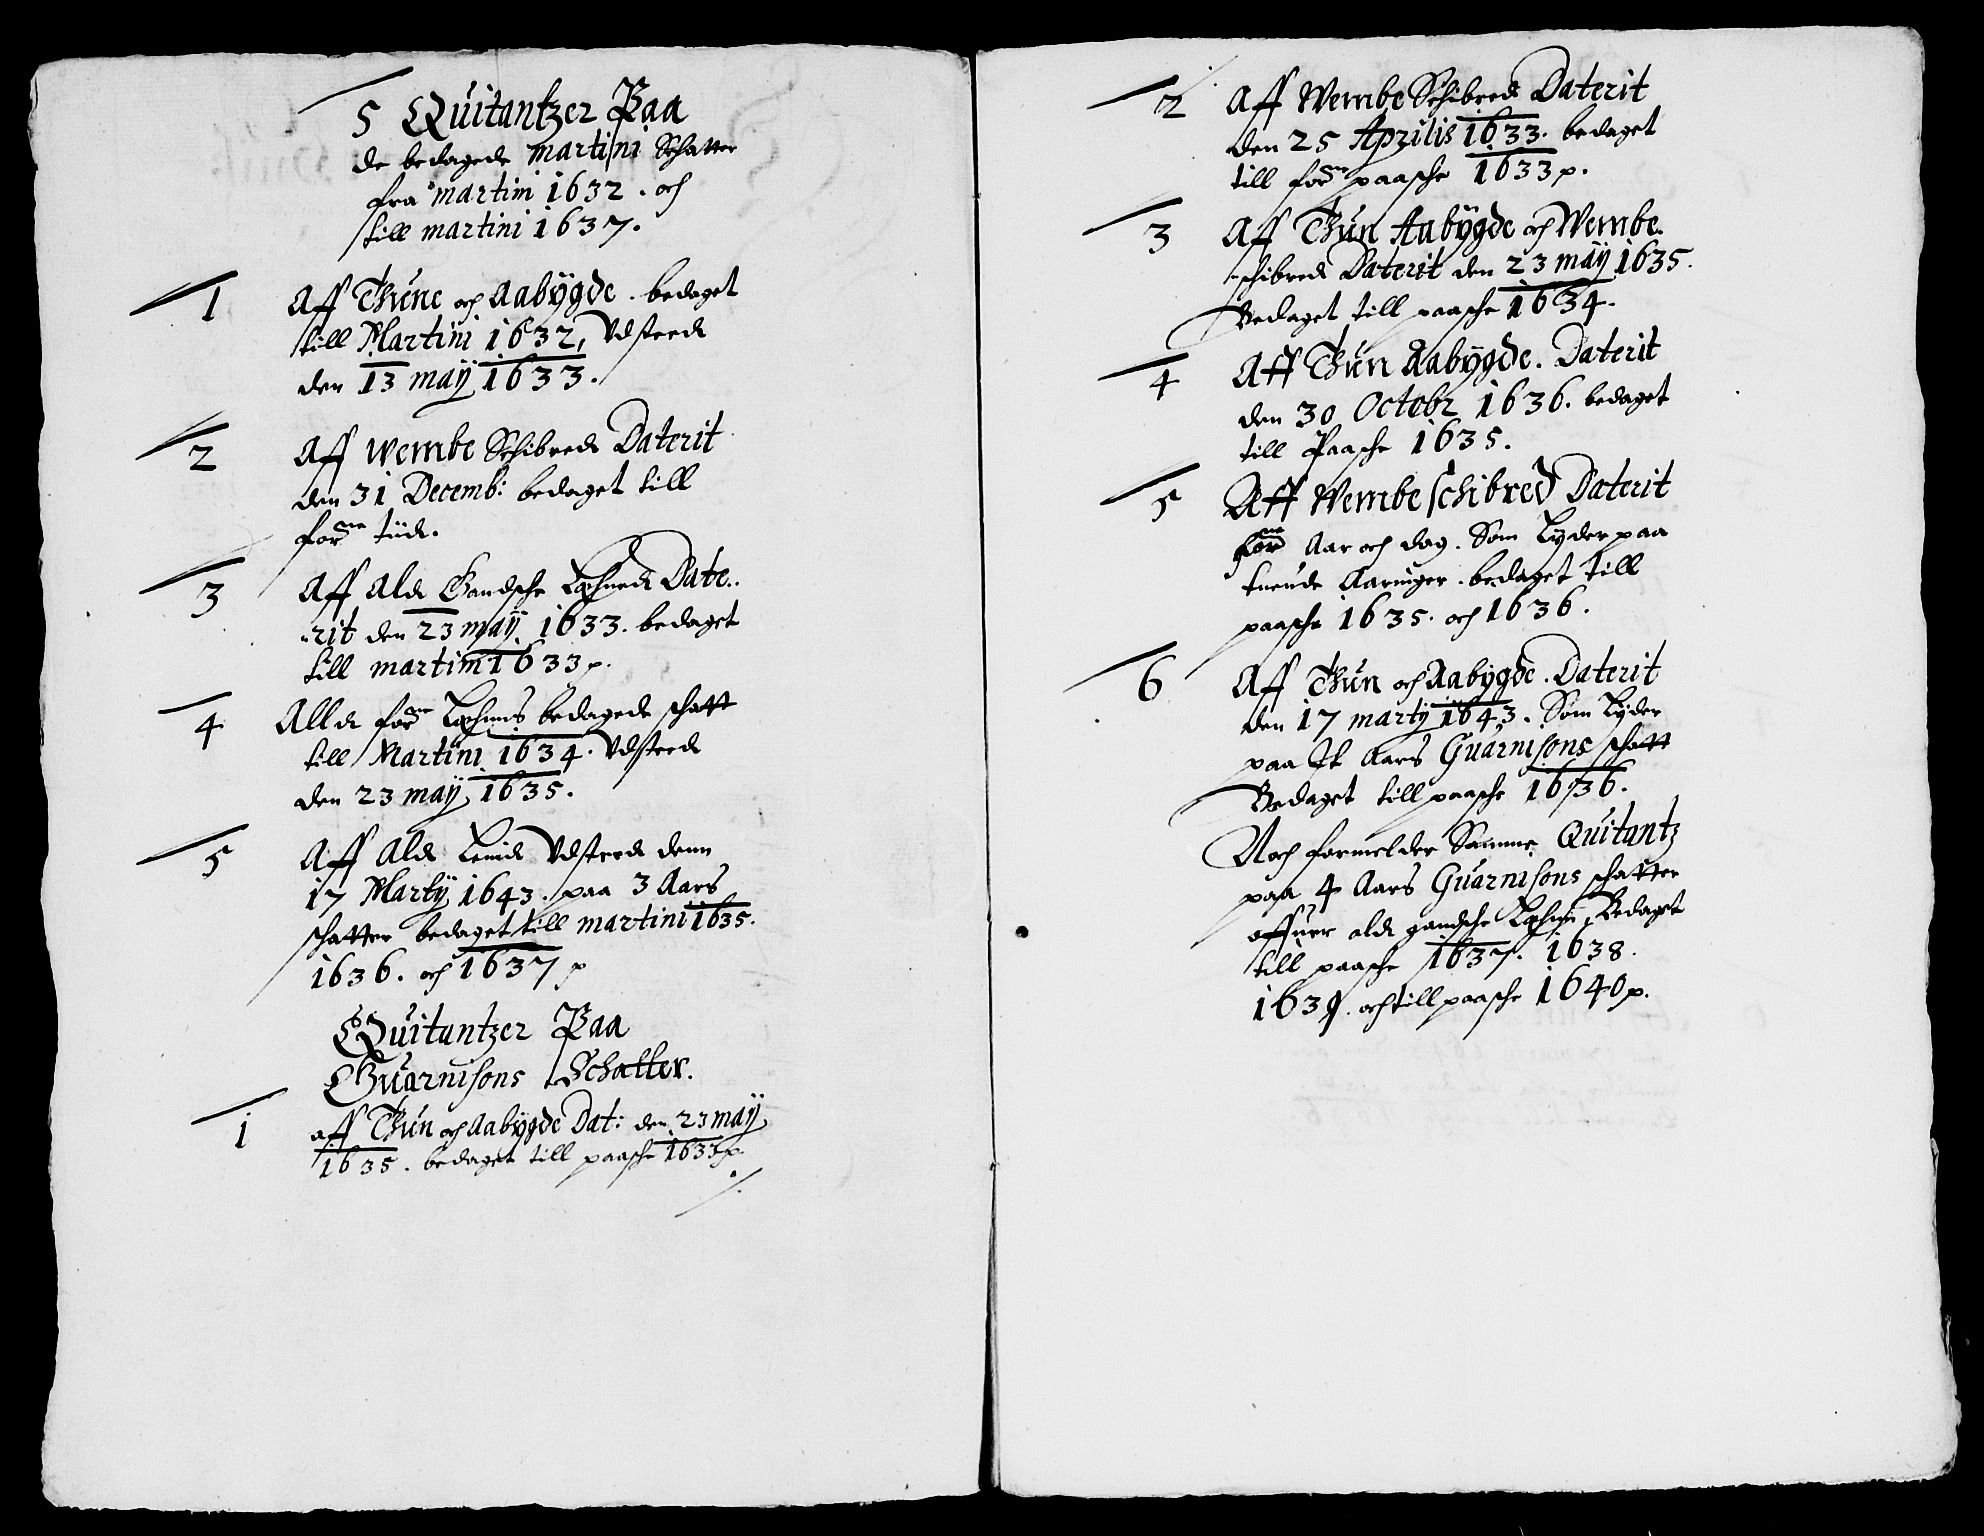 5 Quitantzer Paa
de bedagede Martini Schatter
fra martini 1632. och
till martini 1637.
1 Aff Thune och Aabygde. bedaget
till Martini 1632, Vdsteed
den 13 maÿ 1633.
2 Aff Wembe Schibred Daterit
den 31 Decemb: bedaget till
forne tiid.
3 Aff Ald Gandsche Lehned Date..
..rit den 23 maÿ 1633. bedaget
till martini 1633 p.
4 Alld forne Lehnns bedagede schatt
till Martini 1634. Vdsteed
den 23 maÿ 1635.
5 Aff Ald Vdsteed denn
17 Martÿ 1643. paa 3 Aars
schatter bedaget till martini 1635.
1636. och 1637 p
Quitantzer Paa
Guarnisons Schatter.
1 aff Thun och Aabygde Dat: den 23 maÿ
1635. bedaget till paasche 1633 p.
2 Aff Wembe Schibred Daterit
den 25 Aprilis 1633. bedaget
till forne paasche 1633 p.
3 Aff Thun Aabÿgde och Wembe
-schibred Daterit den 23 maÿ 1635.
Bedaget till paasche 1634.
4 Aff Thun Aabÿgde. Daterit
den 30 Octobr 1636. bedaget
till Paasche 1635.
5 Aff Wembe schibred Daterit
forne Aar och dag. Som Lyder paa
tuende Aaringer. bedaget till
paasche 1635. och 1636.
6 Aff Thun och Aabygde. Daterit
den 17 marty 1643. Som Lyder
paa It Aars Guarnisons schatt
Bedaget till paasche 1636.
Noch formelder Samme Quitantz
paa 4 Aars Guarnisons schatter
affuer ald gandsche Lehnn, Bedaget
till paasche 1637. 1638.
1639. och till paasche 1640 p.